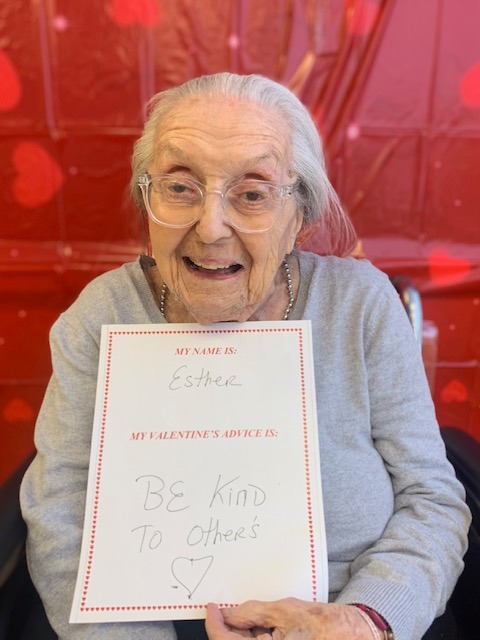 MY NAME IS:
Esther
MY VALENTINE'S ADVICE IS:
BE KinD
To Other's